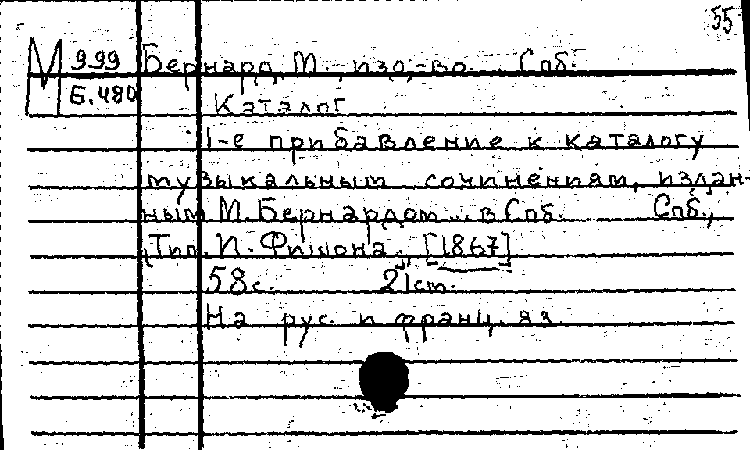 55
М 999 Бернард, М., изд-во. Спб.
Б.480
Каталог
1-е прибавление к каталогу
музыкальным сочинениям, издан-
ным М. Бернардом... в Спб. Спб.,
Тип. И. Фишона, [1867]
58с. 21см.
На рус. и франц. яз.